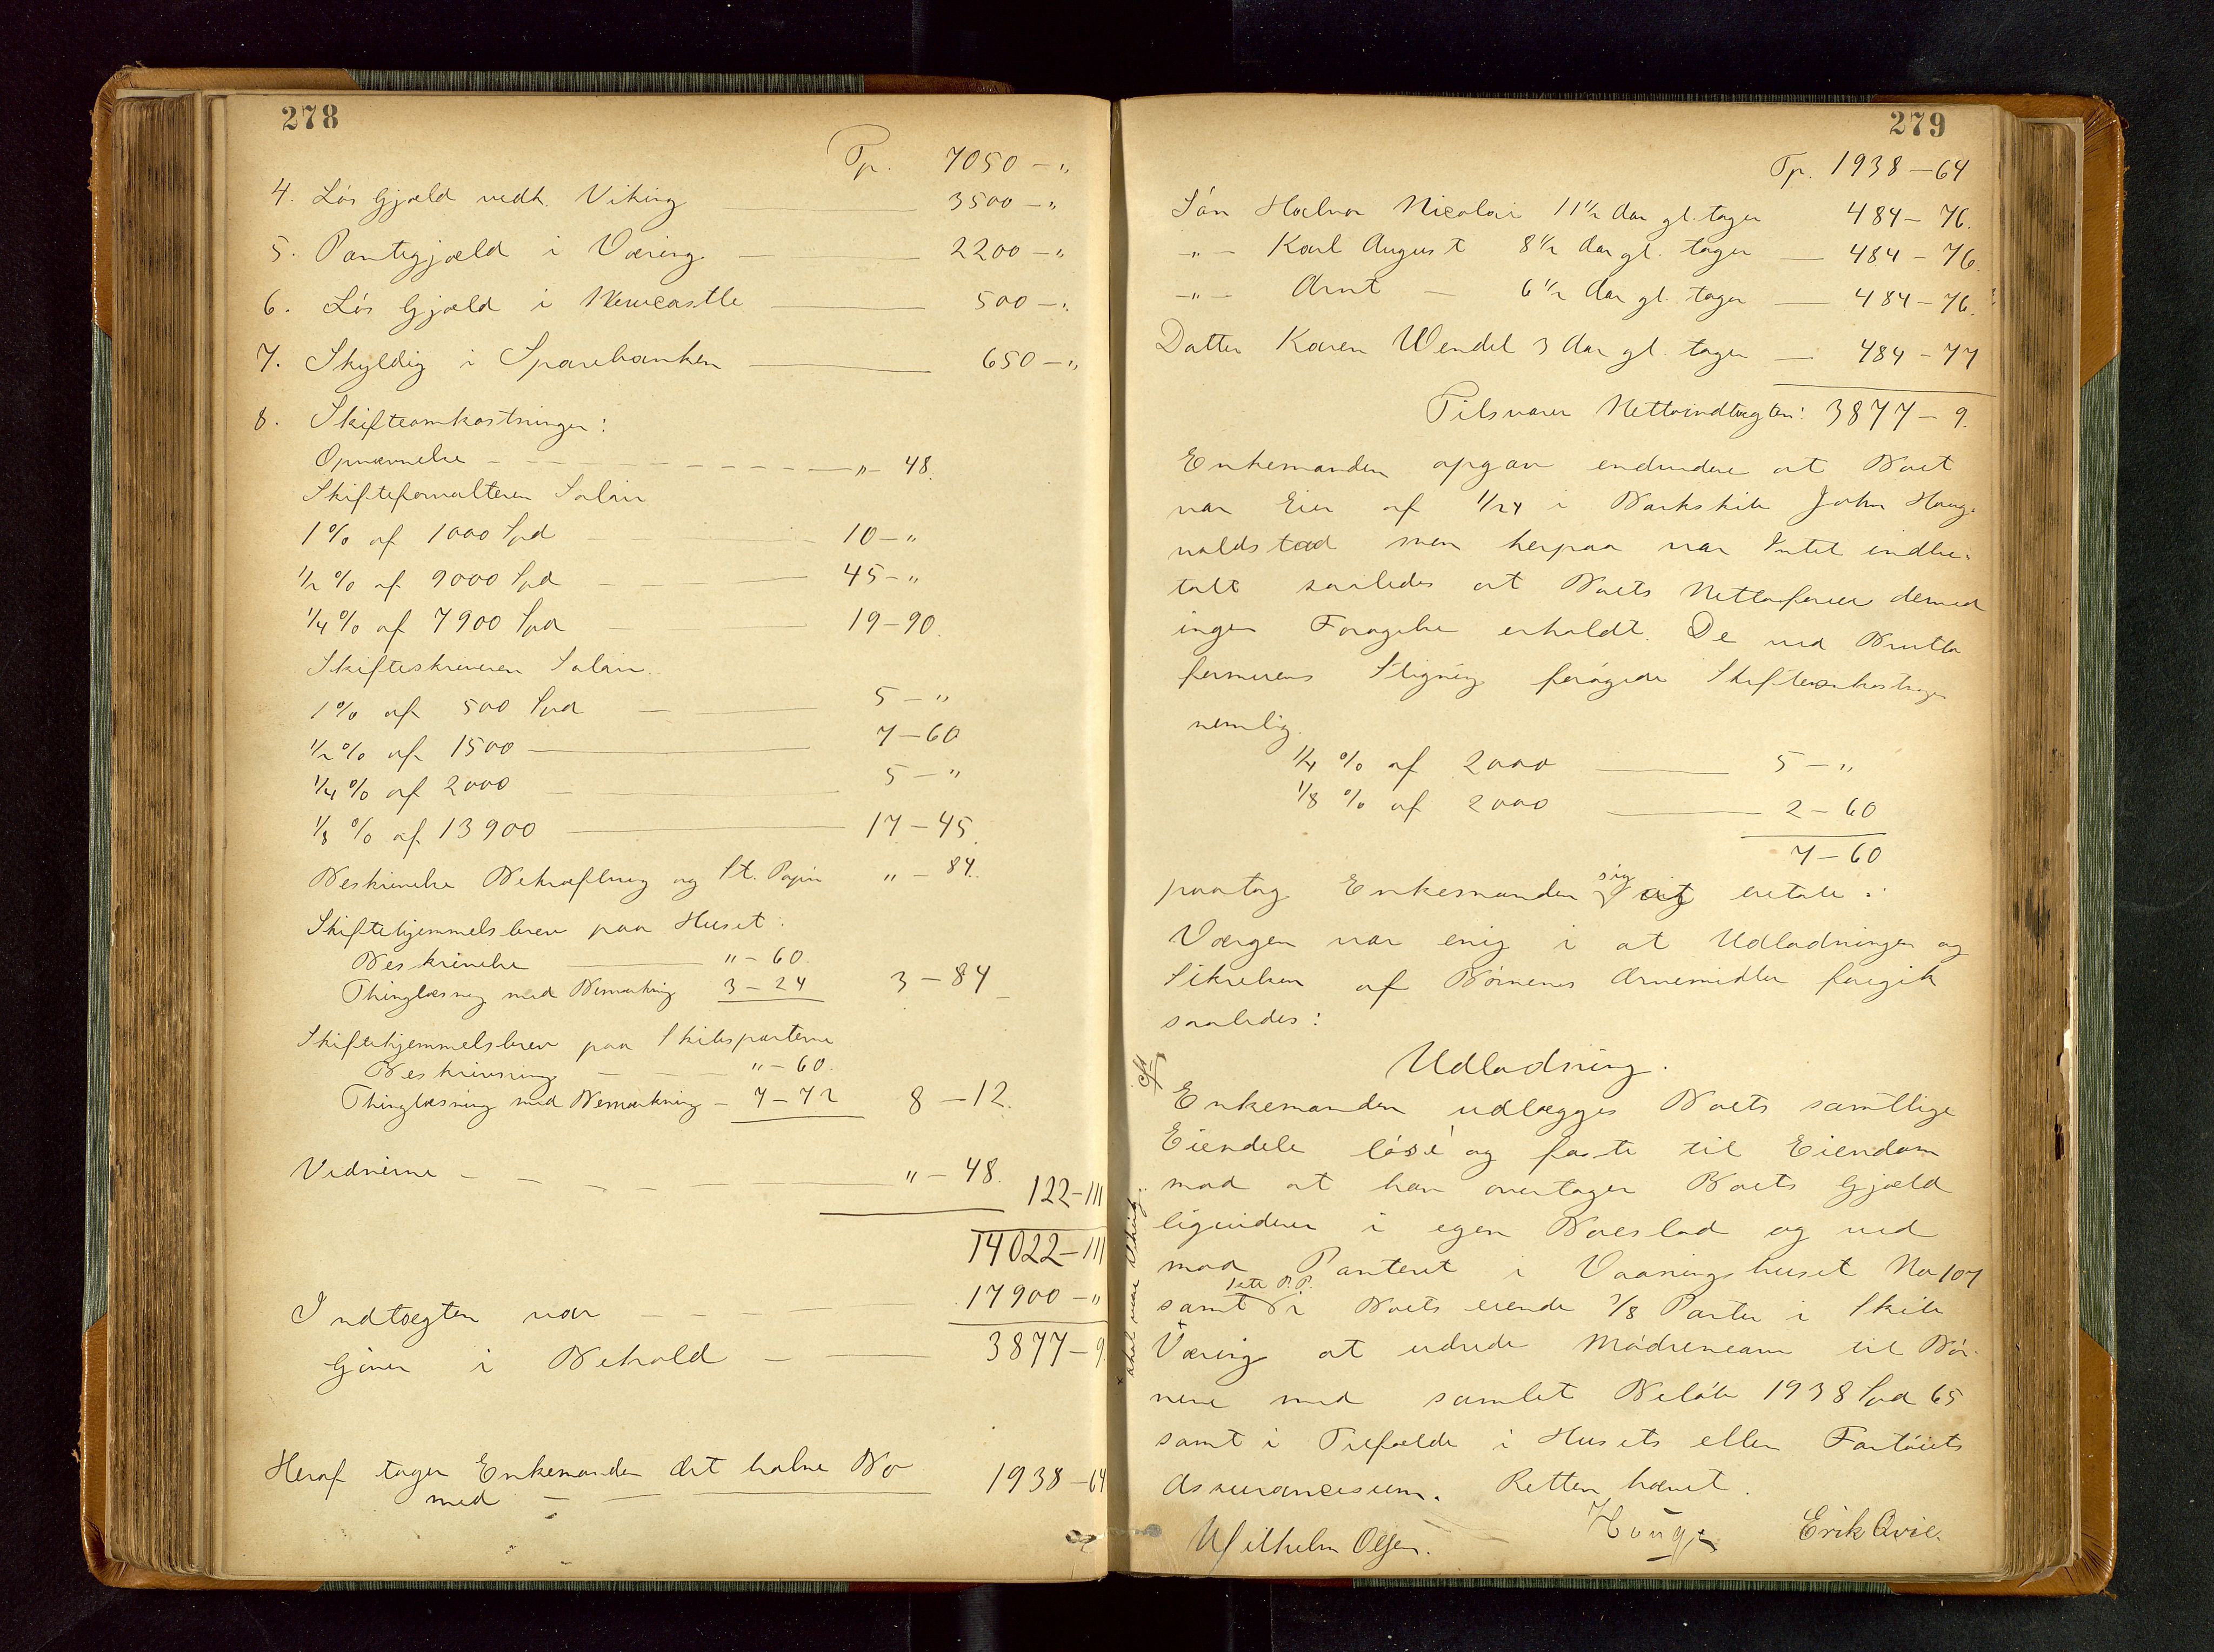 278
Tp. 7050 - "
4. Løs Gjæld vedk. Viking 3500 - "
5. Pantegjæld i Væring 2200 - "
6. Løs Gjæld i Newcastle 500 - "
7. Skyldig i Sparebanken 650 - "
8. Skifteomkostninger:
Opnævnelse " - 48.
Skifteforvalteren Salair
1% af 1000 Spd 10 - "
½% af 9000 Spd 45 - "
¼% af 7900 Spd 19 - 90.
Skifteskriveren Salair.
1% af 500 Spd 5 - "
½% af 1500 7 - 60
¼% af 2000 5 - "
⅛% af 13900 17 - 45.
Beskrivelse Bekræftning og St. Papir " - 84.
Skiftehjemmelsbrev paa Huset:
Beskrivelse " - 60.
Thinglæsning med Bemærkning 3 - 24 3 - 84
Skiftehjemmelsbrev paa Skibsparterne
Beskrivning " - 60.
Thinglæsning med Bemærkning - 7 - 72 8 - 12.
Vidnerne " - 48.
122 - 111
14022 - 111
Indtægten var 17900 - "
Giver i Behold 3877 - 9.
Heraf tager Enkemanden det halve Bo
med 1938 - 64
279
Tp. 1938 - 64
Søn Halvor Nicolai 11½ Aar gl. tager 484 - 76.
" - Karl August 8½ Aar gl. tager 484 - 76.
" - Arnt - 6½ Aar gl. tager 484 - 76.
Datter Karen Wendel 3 Aar gl. tager 484 - 77
Tilsvarer Nettoindtægten: 3877 - 9.
Enkemanden opgav endvidere at Boet
var Eier af 1/24 i Barkskib John Haug-
valdstad men herpaa var Intet indbe-
talt saaledes at Boets Nettoformue derved
ingen Forøgelse erholdt. De ved Brutto
formuens Stigning forøgede Skifteomkostninger
nemlig.
¼% af 2000 5 - "
⅛% af 2000 2 - 60
7 - 60
paatog Enkemanden sig at betale.
Værgen var enig i at Udlodningen og
Sikrelsen af Børnenes Arvemidler foregik
saaledes:
Udlodning.
Enkemanden udlægges Boets samtlige
Eiendele løse og faste til Eiendom
mod at han overtager Boets Gjæld
ligeledes i egen Boeslod og ved
mod Panteret i Vaaningshuset No 107
1ste P.P.
samt i Boets eiende ⅞ Parter i Skib
Væring at udrede Mødrenearv til Bør-
nene med samlet Beløb 1938 Spd 65
samt i Tilfælde i Husets eller Fartøiets
Assurancesum. Retten hævet.
Wilhelm Olsen. Hauge Erik Qvie.